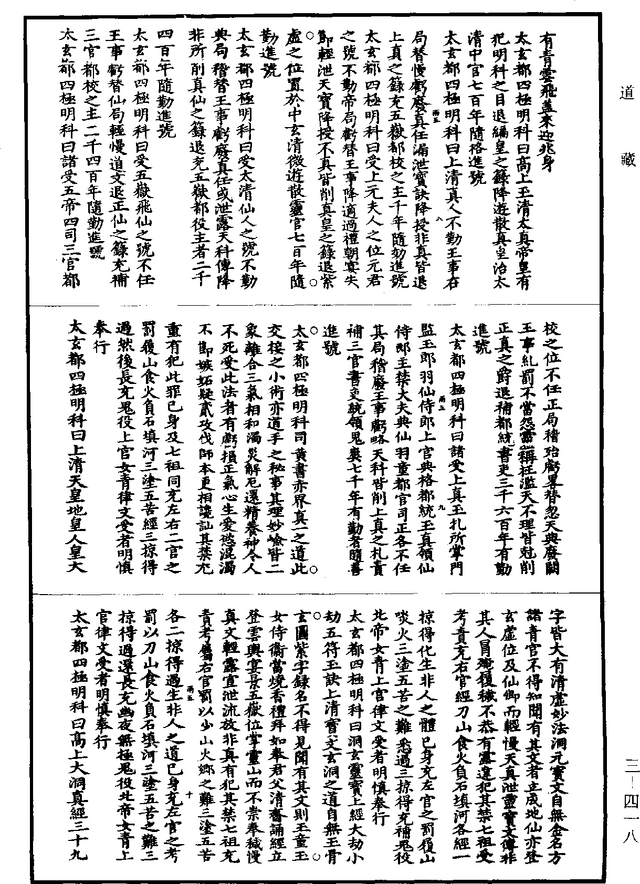 道藏
有青雲飛蓋來迎兆身
太玄都四極明科曰高上玉清太真帝皇有
犯明科之目退編皇之錄降遊散真皇治太
清中宫七百年隨格進號
太玄都四極明科曰上清真人不勤王事在
局替慢虧廢真任漏泄寶訣降授非真皆退
上真之錄充五嶽都校之主千年隨劫進號
太玄都四極明科曰受上元夫人之位元君
之號不勤帝局虧替王事降適過禮朝宴失
節輕泄天寶降授不真皆削真皇之錄退紫
虛之位置於中玄清微遊散靈官七百年隨
勤進號
太玄都四極明科曰受太清仙人之號不勤
典局稽替王事虧廢真任或泄露天科傳降
非所削真仙之錄退充五嶽都役主者二千
四百年隨勤進號
太玄都四極明科曰受五嶽飛仙之號不任
王事虧替仙局輕慢道文退正仙之錄充補
三官都校之主二千四百年隨勤進號
太玄都四極明科曰諸受五帝四司三官都
校之位不任正局稽殆虧畧替忽天典廢闕
王事糺罰不當怨䨥稱枉濫天不理皆尅削
正真之爵退補都統書吏三千六百年有勤
進號
太玄都四極明科曰諸受上真玉札所掌門
監玉郎羽仙侍郎上官典格都統玉真領仙
侍郎主禁大夫典仙羽童都官司正各不任
其局稽廢王事虧略天科皆削上真之札責
補三官書吏統領鬼奥七千年有勤者隨善
進號
太玄都四極明科司黄書赤界真一之道此
交接之小術亦道手之秘事其理妙嶮皆二
象離合三氣相和濁炎解厄還精養神令人
不死受此法者有虧損正氣心生愛慾混濁
不節嫉妬疑貳攻伐師本更相讒訕其禁尤
重有犯此罪已身及七祖同充左右二官之
罰履山食火負石填河三塗五苦經三掠得
過然後長充鬼役上官女青律文受者明慎
奉行
太玄都四極明科曰上清天皇地皇人皇大
字皆大有清虛妙法洞元寶文自無金名方
諸青官不得知聞有其文者立成地仙亦登
玄虛位及仙卿而輕慢天真泄靈寶文傳非
其人冒殗履穢不恭有靈違犯其禁七祖受
考責充右官經刀山食火負石填河各經一
掠得化生非人之體已身充左官之罰履山
啖火三塗五苦之難悉過三掠得充補鬼役
北帝女青上官律文受者明慎奉行
太玄都四極明科曰洞玄靈寶上經大劫小
劫五符玉訣上清寶文玄洞之道自無玉骨
玄圖紫字錄名不得見聞有其文則玉童玉
女侍衛當燒香禮拜如奉君父清齋誦經立
登雲輿宴景五嶽位掌靈山而不崇奉穢慢
真文輕露宣泄流放非真有犯其禁七祖充
責考屬右官罰以少山火鄉之難三塗五苦
各二掠得過生非人之道已身充左官之考
罰以刀山食火負石填河三塗五苦之難三
掠得過還長充幽夜無極鬼役北帝女青上
官律文受者明慎奉行
太玄都四極明科曰高上大洞真經三十九
三—四一八